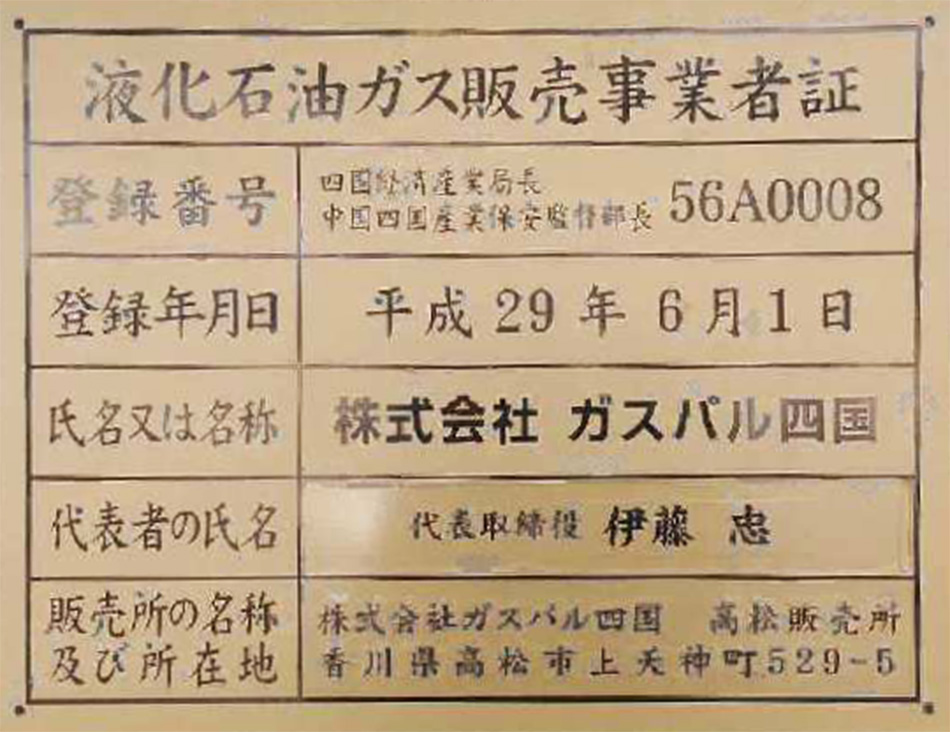 液化石油ガス販売事業者証
登録番号
四国経済産業局長
中国四国産業保安監督部長
56A0008
登録年月日
平成 29 年 6 月 1 日
氏名又は名称
株式会社 ガスパル四国
代表者の氏名
代表取締役 伊藤 忠
販売所の名称
及び所在地
株式会社ガスパル四国 高松販売所
香川県高松市上天神町529-5